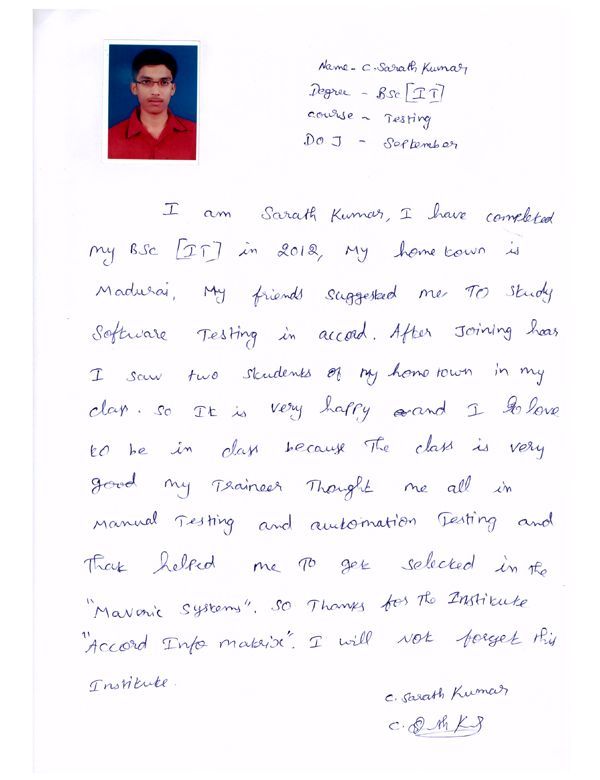 Name - C. Sarath Kumar
Degree - BSc [IT]
Course - Testing
D.O.J - September
I am Sarath Kumar, I have completed
my BSc [IT] in 2012, My home town is
Madurai, My friends suggested me To Study
Software Testing in accord. After Joining hear
I saw two students of my home town in my
class. So It is very happy and I love
to be in class because The class is very
good My Traineer Thought me all in
Manual Testing and automation Testing and
That helped me To get selected in the
"Maveric Systems". So Thanks for The Institute
"Accord Info matrix". I will not forget this
Institute.
C. Sarath Kumar
C.